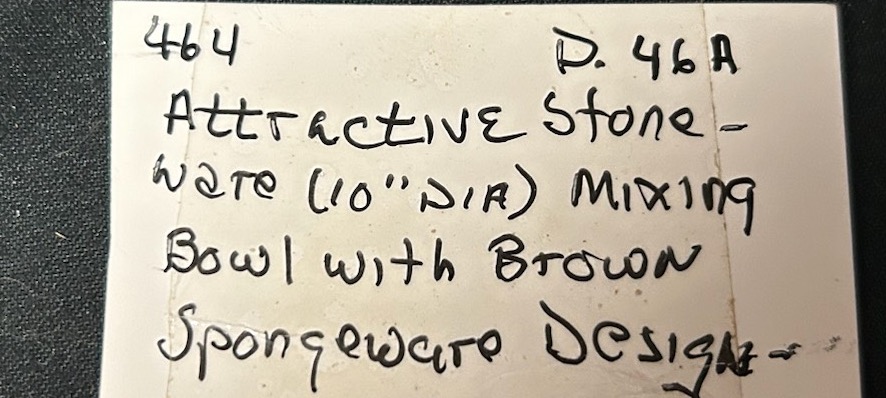 464 D. 46A
Attractive Stone-
ware (10" DIA) Mixing
Bowl with Brown
Spongeware Design-